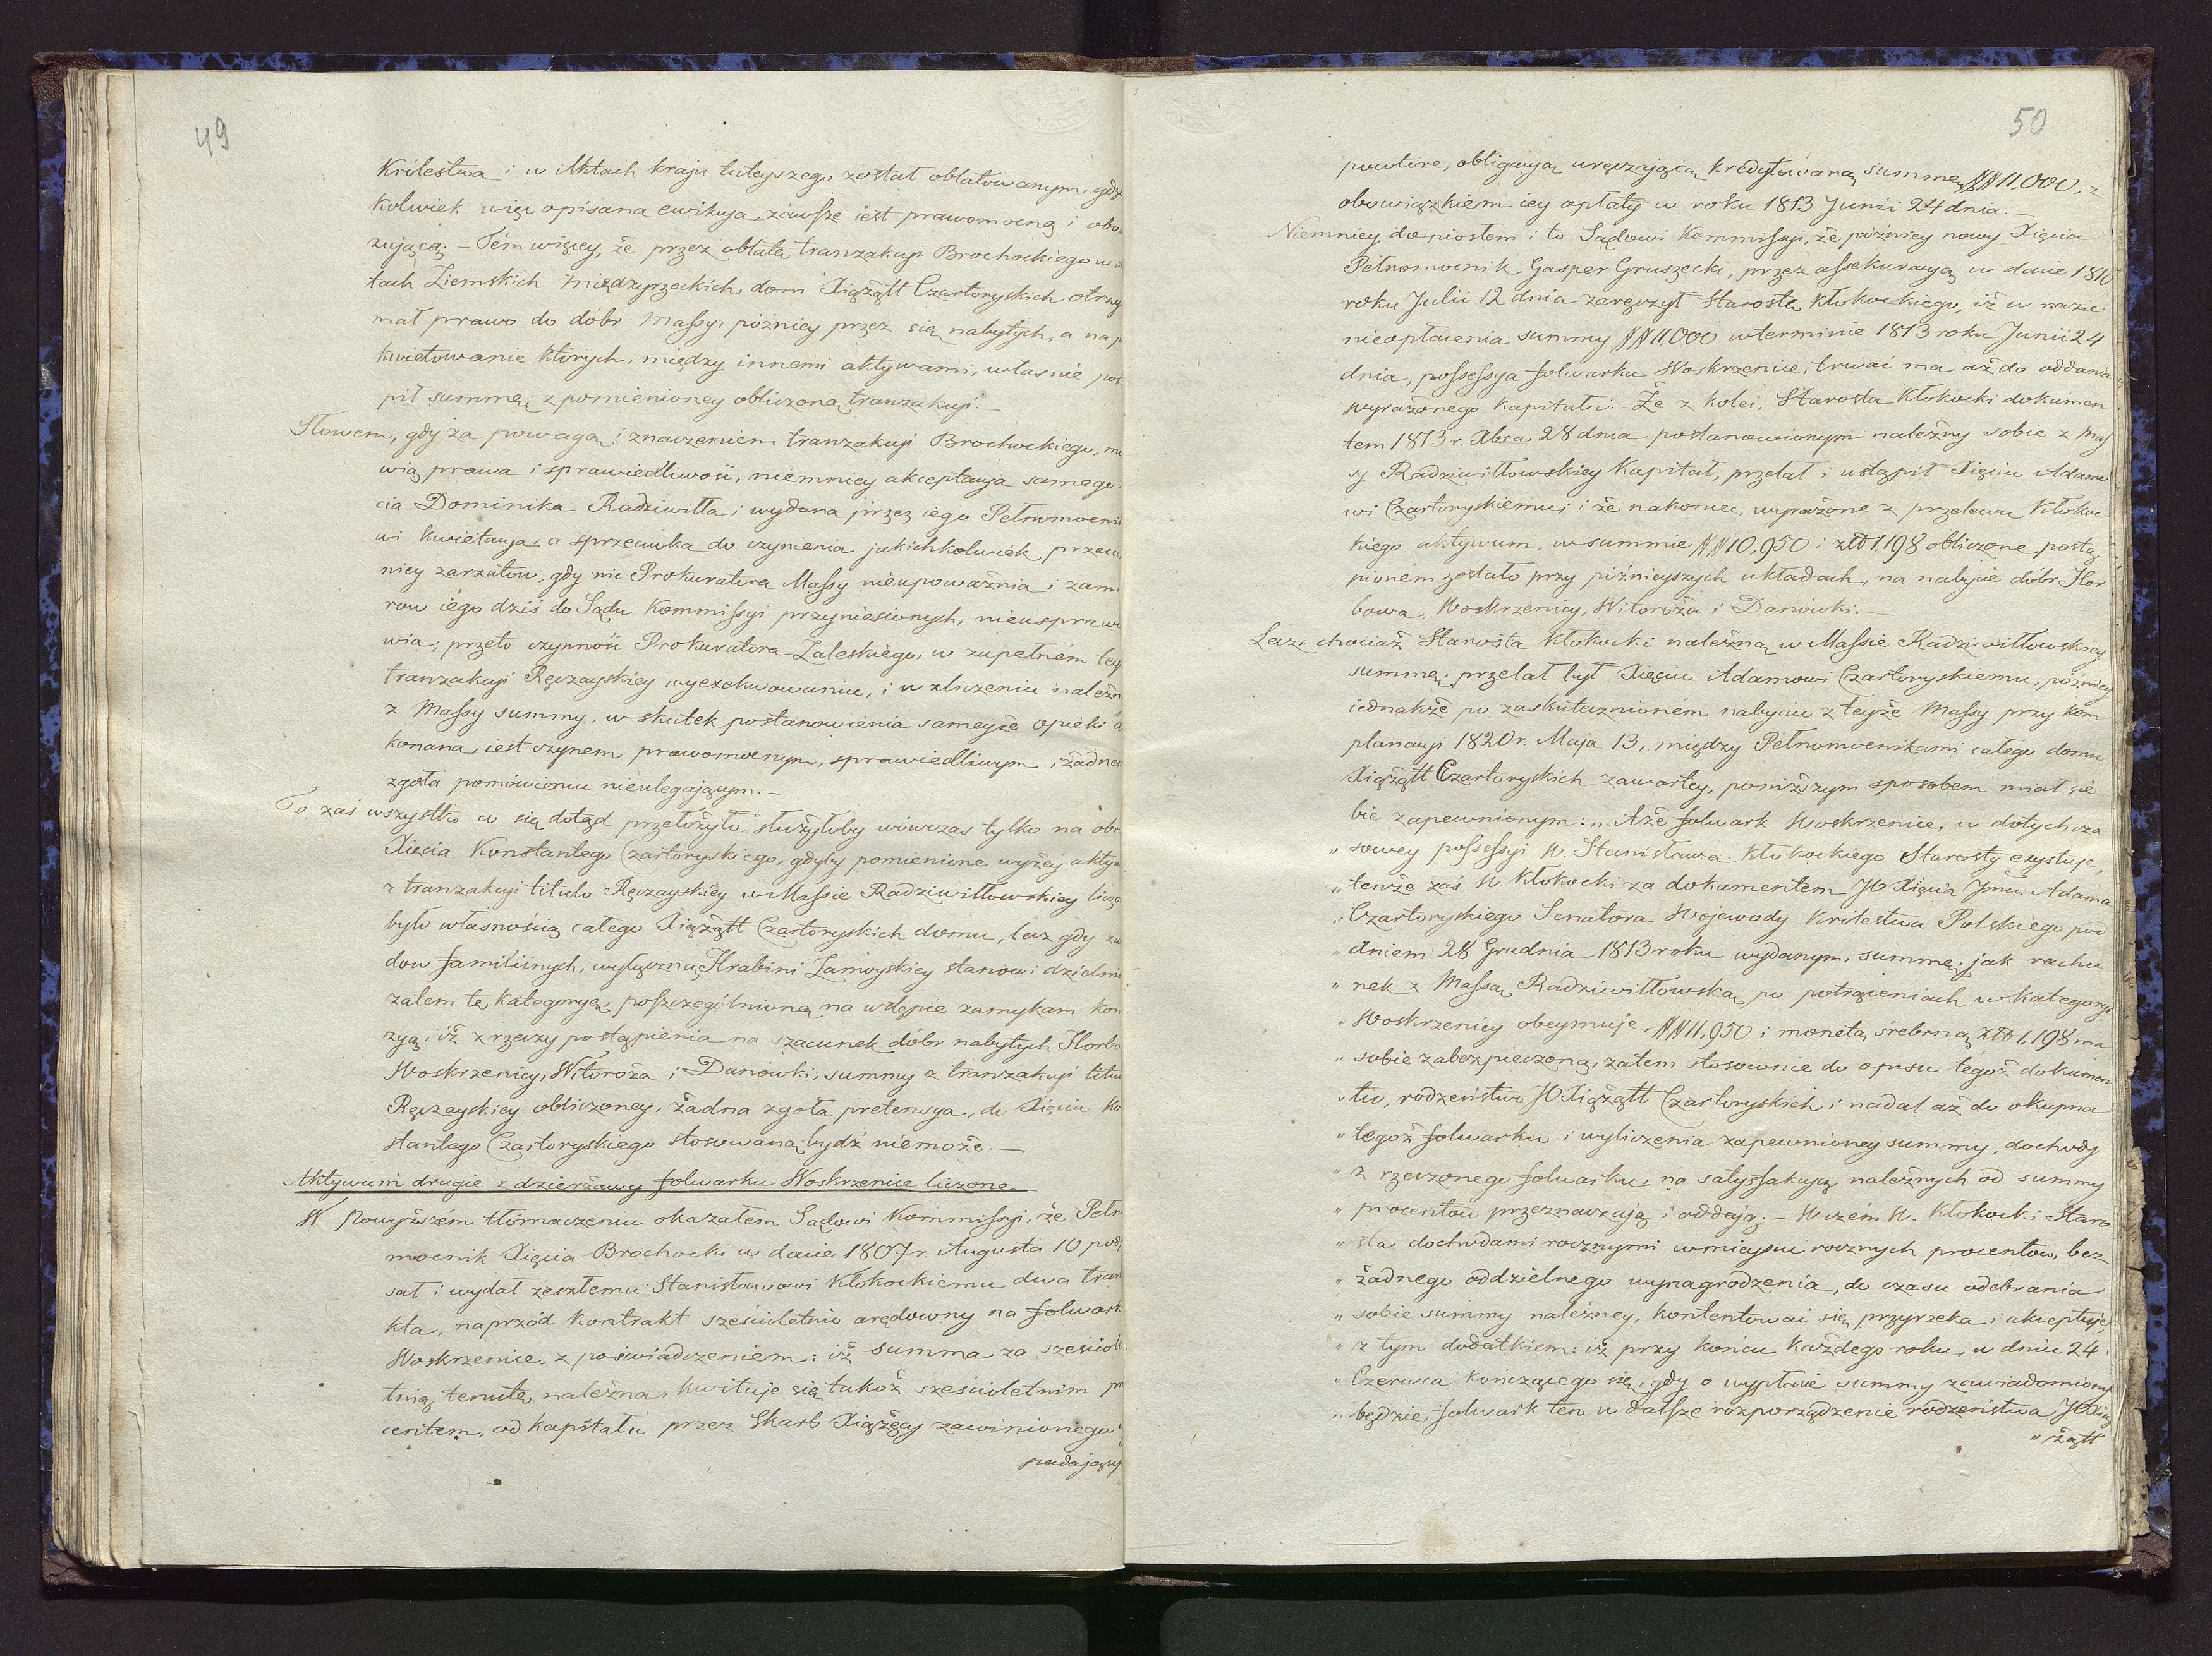 49
Królestwa i w Aktach kraju tuteyszego został oblatowanym, gdzie
kolwiek więc opisana ewikcya, zawsze iest prawomocną i obo
zującą; – Tém więcey, że przez oblatę tranzakcyi Brochockiego w
tach Ziemskich Międzyrzeckich, dom Xiążątt Czartoryskich otrzy
mał prawo do dóbr Massy, póżniey przez się nabytych, a na
kwietowanie których, między innemi aktywami, właśnie
pił summę; z pomienioney obliczoną tranzakcyi. –
Słowem, gdy za powagą i znaczeniem tranzakcyi Brochockiego, mó
wią prawa i sprawiedliwość, niemniey akceptacya samego
cia Dominika Radziwiłła i wydana przez iego Pełnomocni
wi kwietacya, a sprzeciwka do czynienia jakichkolwiek, przeci
niey zarzutow, gdy nic Prokuratora Massy nieupoważnia i zam
row iego dziś do Sądu Kommissyi przyniesionych, nieusprawi
wia; przeto czynność Prokuratora Zaleskiego, w zupełném tey
tranzakcyi Ręczayskiey wyexekwowaniu, i w zliczeniu należn
z Massy summy, w skutek postanowienia sameyże opieki
konana, iest czynem prawomocnym, sprawiedliwym i żadne
zgoła pomówieniu nieulegającym. –
To zaś wszystko co się dotąd przełożyło, służyłoby wówczas tylko na obr
Xięcia Konstantego Czartoryskiego, gdyby pomienione wyżej akty
z tranzakcyi titulo Ręczayskiey w Massie Radziwiłłowskiey
było własnością całego Xiążątt Czartoryskich domu, lecz gdy
dow familiinych, wyłączną Hrabini Zamoyskiey stanowi dzielni
zatem tę kategoryą, poszczególnioną na wstępie zamykam kon
zyą, iż z rzeczy postąpienia na szacunek dóbr nabytych Horbo
Woskrzenicy, Witoroża i Danówki, summy z tranzakcyi titu
Ręczayskiey obliczoney, żadna zgoła pretensya, do Xięcia Ko
stantego Czartoryskiego stosowaną bydź niemoże. –
Aktywum drugie z dzierżawy folwarku Woskrzenice liczone
W Powyższém tłómaczeniu okazałem Sądowi Kommissyi, że Pełn
mocnik Xięcia Brochocki w dacie 1807 r. Augusta 10 pod
sał i wydał zeszłemu Stanisławowi Kłokockiemu dwa tran
kta, naprzód kontrakt sześcioletnio arędowny na folwark
Woskrzenice, z poświadczeniem: iż summa za sześciole
tnią tenutę należna, kwituje się tukoż sześcioletnim pr
centem, od kapitału przez Skarb Xiążęcy zawinionego
padający
50
powtore, obligacyą uręczającą kredytowaną summę ## 11.000, z
obowiązkiem iey opłaty w roku 1813 Junii 24 dnia. –
Niemniey doniosłem i to Sądowi Kommissyi, że późniey nowy Xięcia
Pełnomocnik Gasper Gruszecki, przez assekuracyą w dacie 1810
roku Julii 12 dnia zaręczył Starostę Kłokockiego, iż w razie
nieopłacenia summy ## 11.000 w terminie 1813 roku Junii 24
dnia, possessya folwarku Woskrzenice, trwać ma aż do oddania
wyrażonego kapitału. – Że z kolei, Starosta Kłokocki dokumen
tem 1813 r. Xbra 28 dnia postanowionym należny sobie z Mas
sy Radziwiłłowskiey kapitał, przelał i ustąpił Xięciu Adamo
wi Czartoryskiemu; i że nakoniec, wyrażone z przelewu Kłokoc
kiego aktywum, w summie ## 10,950 i złł 1.198 obliczone, postą
pioném zostało przy późnieyszych układach, na nabycie dóbr Hor
bowa, Woskrzenicy, Witoroża i Danówki. –
Lecz chociaż Starosta Kłokocki należną w Massie Radziwiłłowskiey
summę; przelał był Xięciu Adamowi Czartoryskiemu, późniey
iednakże po zaskutecznioném nabyciu z teyże Massy przy kom
planacyi 1820 r. Maja 13, między Pełnomocnikami całego domu
Xiążątt Czartoryskich zawartey, poniższym sposobem miał sie
bie zapewnionym: „A że folwark Woskrzenice, w dotychcza
„ sowey possessyi W. Stanisława Kłokockiego Starosty exystuje,
„ tenże zaś W. Kłokocki za dokumentem JO Xięcia Jmci Adama
„ Czartoryskiego Senatora Wojewody Królestwa Polskiego pod
„ dniem 28 Grudnia 1813 roku wydanym, summę; jak rachu
„ nek z Massą Radziwiłłowską po potrąceniach w kategoryi
„ Woskrzenicy obeymuje, ## 11,950 i monetą śrebrną złł 1,198 ma
„ sobie zabezpieczoną, zatem stosownie do opisu tegoż dokumen
„ tu, rodzeństwo JO Xiążątt Czartoryskich i nadal aż do okupna
„ tegoż folwarku i wyliczenia zapewnioney summy, dochody
„ z rzeczonego folwarku, na satysfakcyą należnych od summy
„ procentow przeznaczają i oddają; – W czém W. Kłokocki Staro
„ sta dochodami rocznymi w mieyscu rocznych procentow, bez
„ żadnego oddzielnego wynagrodzenia, do czasu odebrania
„ sobie summy należney, kontentować się przyrzeka i akceptuje,
„ z tym dodatkiem: iż przy końcu każdego roku, w dniu 24
„ Czerwca kończącego się, gdy o wypłacie summy zawiadomiony
„ będzie, folwark ten w dalsze rozporządzenie rodzeństwa JOXią
„ żątt